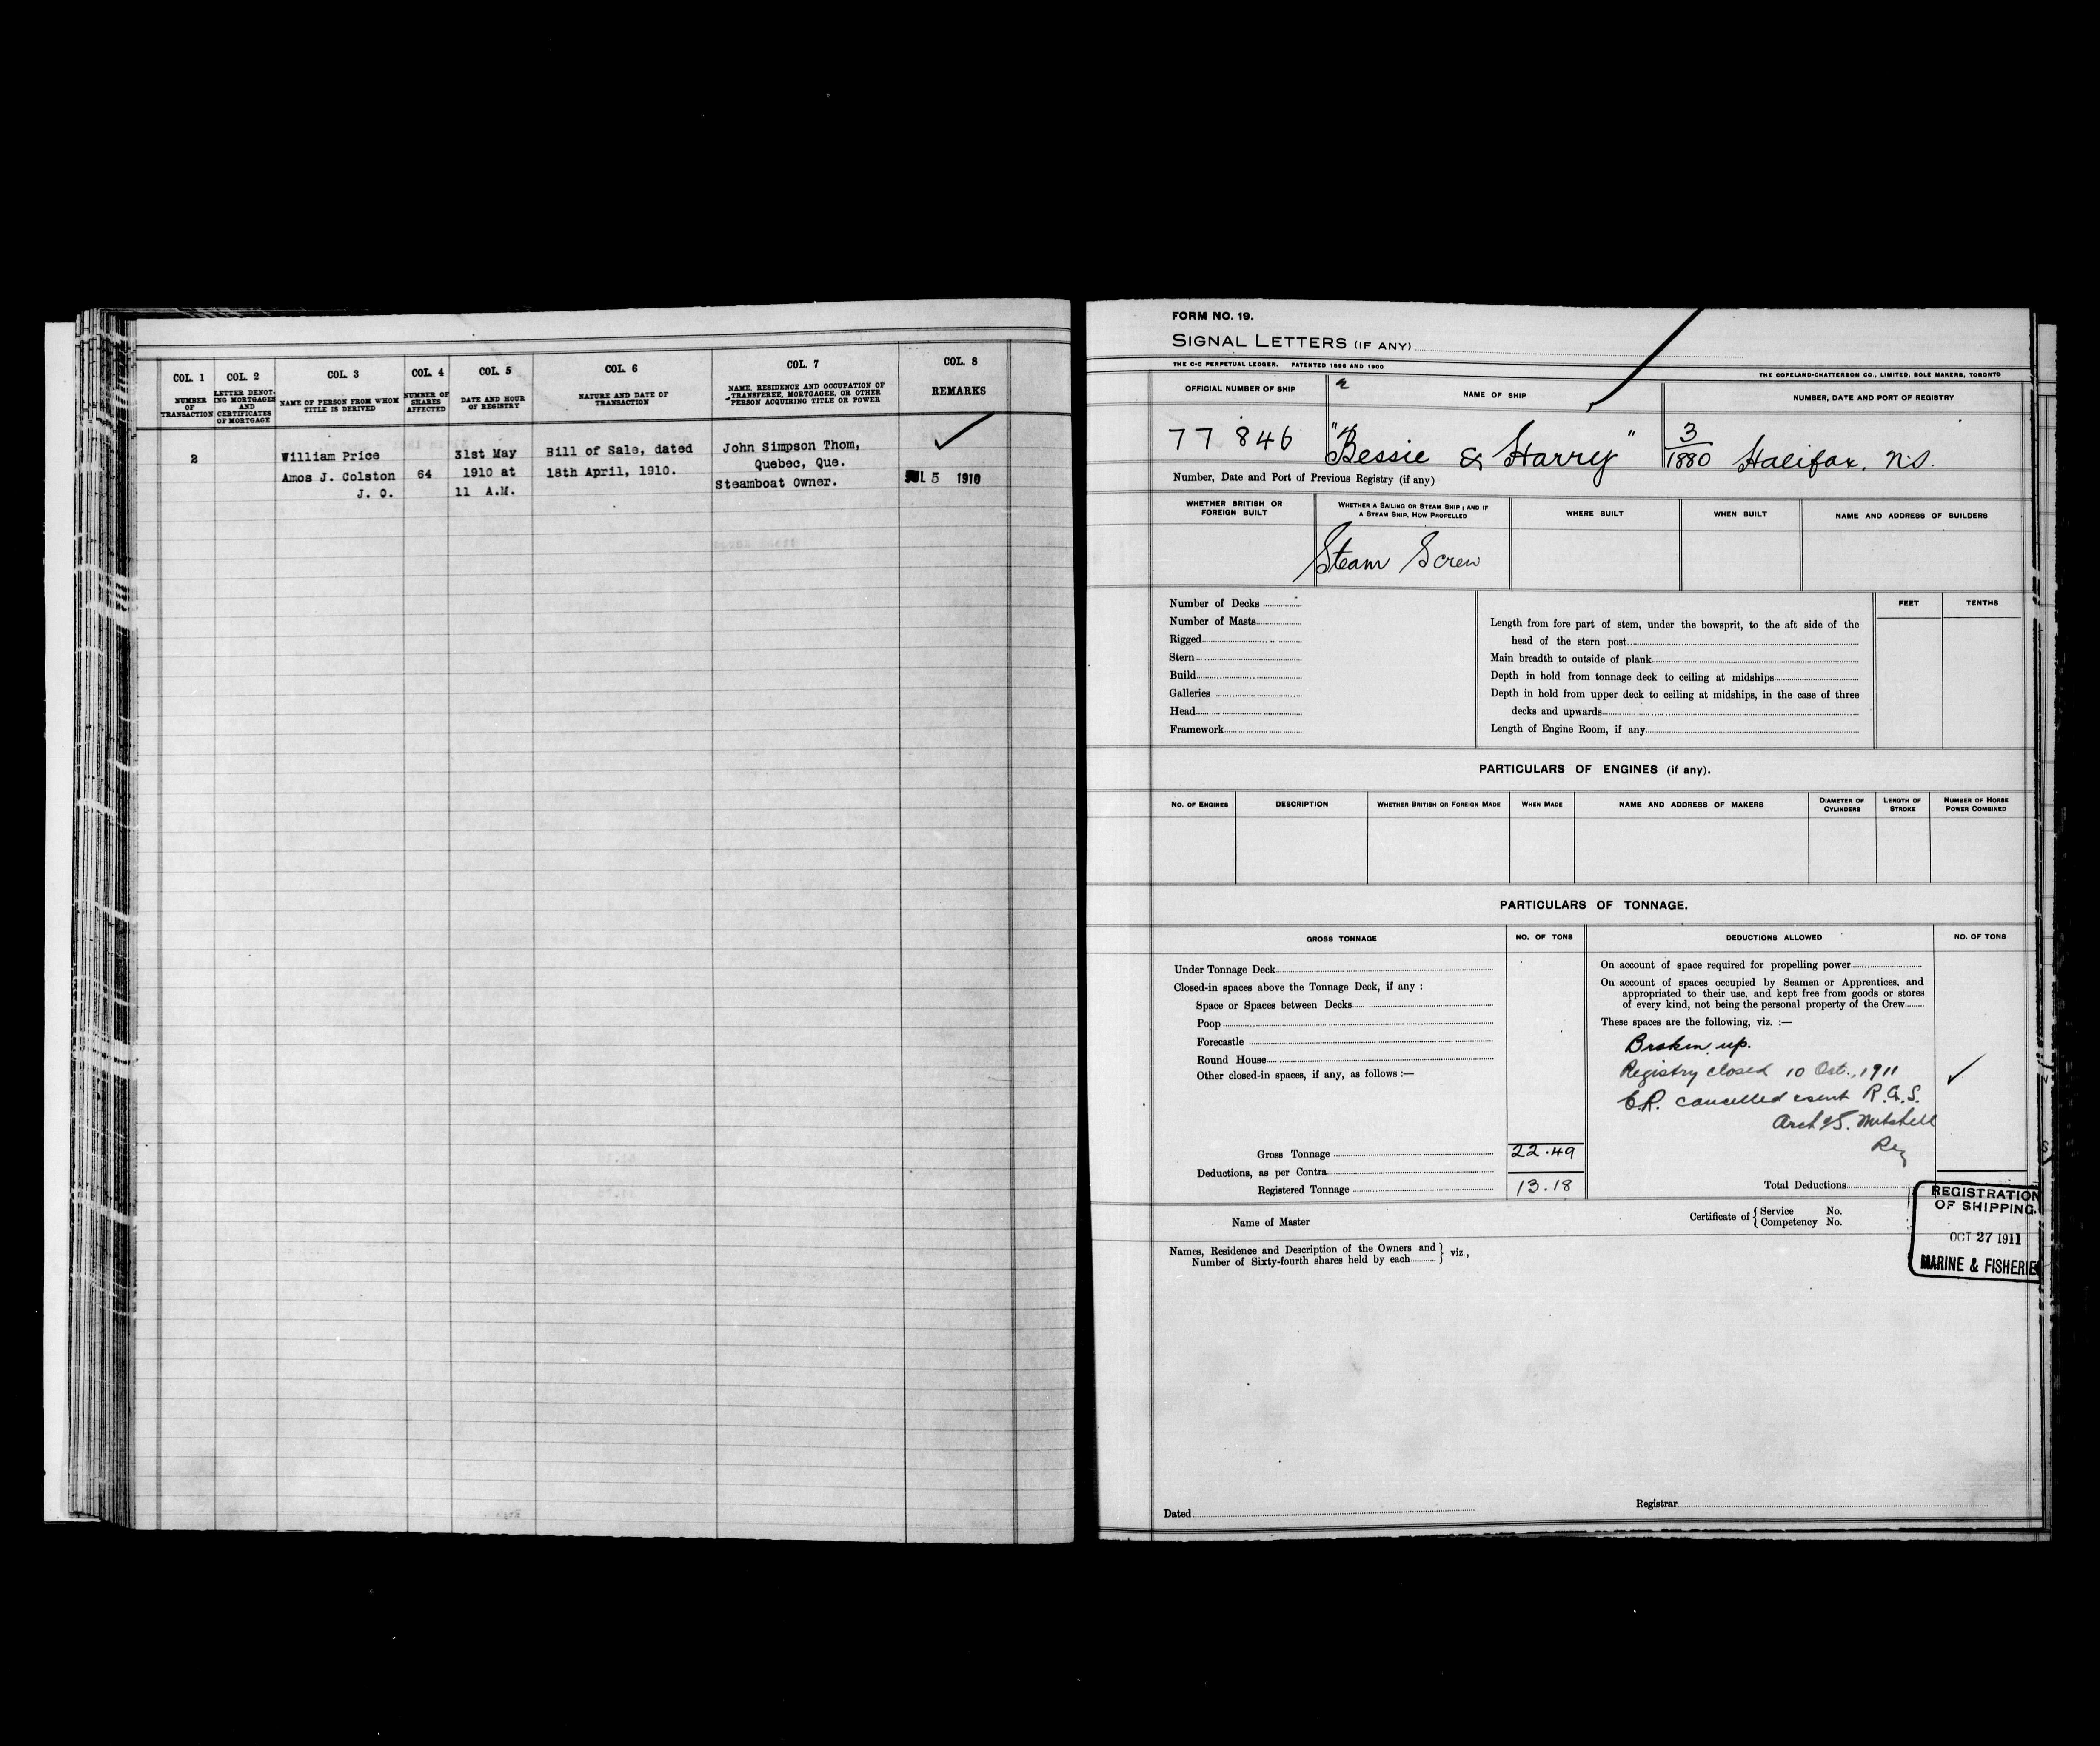 COL. 1 COL. 2 COL. 3 COL. 4 COL. 5 COL. 6 COL. 7 COL. 8
NUMBER OF TRANSACTION
LETTER DENOTING MORTGAGES AND CERTIFICATES OF MORTGAGE
NAME OF PERSON FROM WHOM TITLE IS DERIVED
NUMBER OF SHARES AFFECTED
DATE AND HOUR OF REGISTRY
NATURE AND DATE OF TRANSACTION
NAME, RESIDENCE AND OCCUPATION OF TRANSFEREE, MORTGAGEE, OR OTHER PERSON ACQUIRING TITLE OR POWER
REMARKS
2 William Price 31st May Bill of Sale, dated John Simpson Thom,
Amos J. Colston 64 1910 at 18th April, 1910. Quebec, Que.
J. O. 11 A.M. Steamboat Owner. JUL 5 1910
FORM NO. 19.
SIGNAL LETTERS (IF ANY)
THE C-C PERPETUAL LEDGER. PATENTED 1896 AND 1900
THE COPELAND-CHATTERSON CO., LIMITED, SOLE MAKERS, TORONTO
OFFICIAL NUMBER OF SHIP NAME OF SHIP NUMBER, DATE AND PORT OF REGISTRY
77846 "Bessie & Harry" 3/1880 Halifax, N.S.
Number, Date and Port of Previous Registry (if any)
WHETHER BRITISH OR FOREIGN BUILT
WHETHER A SAILING OR STEAM SHIP; AND IF A STEAM SHIP, HOW PROPELLED
WHERE BUILT
WHEN BUILT
NAME AND ADDRESS OF BUILDERS
Steam Screw
Number of Decks
Number of Masts
Rigged
Stern
Build
Galleries
Head
Framework
FEET TENTHS
Length from fore part of stem, under the bowsprit, to the aft side of the
head of the stern post
Main breadth to outside of plank
Depth in hold from tonnage deck to ceiling at midships
Depth in hold from upper deck to ceiling at midships, in the case of three
decks and upwards
Length of Engine Room, if any
PARTICULARS OF ENGINES (if any).
NO. OF ENGINES DESCRIPTION WHETHER BRITISH OR FOREIGN MADE WHEN MADE NAME AND ADDRESS OF MAKERS DIAMETER OF CYLINDERS LENGTH OF STROKE NUMBER OF HORSE POWER COMBINED
PARTICULARS OF TONNAGE.
GROSS TONNAGE NO. OF TONS DEDUCTIONS ALLOWED NO. OF TONS
Under Tonnage Deck
Closed-in spaces above the Tonnage Deck, if any :
Space or Spaces between Decks
Poop
Forecastle
Round House
Other closed-in spaces, if any, as follows :—
Gross Tonnage 22.49
Deductions, as per Contra
Registered Tonnage 13.18
On account of space required for propelling power
On account of spaces occupied by Seamen or Apprentices, and
appropriated to their use, and kept free from goods or stores
of every kind, not being the personal property of the Crew
These spaces are the following, viz. :—
Broken up.
Registry closed 10 Oct., 1911
C.R. cancelled & sent R.G.S.
Arch S. Mitchell
Reg
Total Deductions
Name of Master
Certificate of { Service No.
Competency No.
REGISTRATION
OF SHIPPING.
OCT 27 1911
MARINE & FISHERIE
Names, Residence and Description of the Owners and
Number of Sixty-fourth shares held by each } viz.,
Dated
Registrar